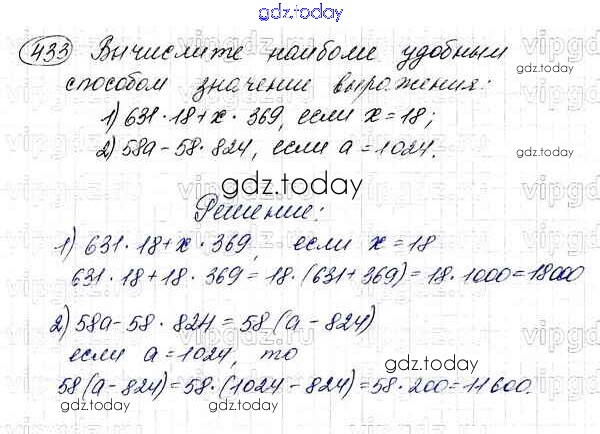 gdz.today
433 Вычислите наиболее удобным
способом значение выражения:
1) 631·18+x·369, если x=18;
2) 58a-58·824, если a=1024.
gdz.today
gdz.today
Решение:
1) 631·18+x·369, если x=18
631·18+18·369=18·(631+369)=18·1000=18000
2) 58a-58·824=58(a-824)
если a=1024, то
gdz.today
58(a-824)=58·(1024-824)=58·200=11600.
gdz.today
gdz.today